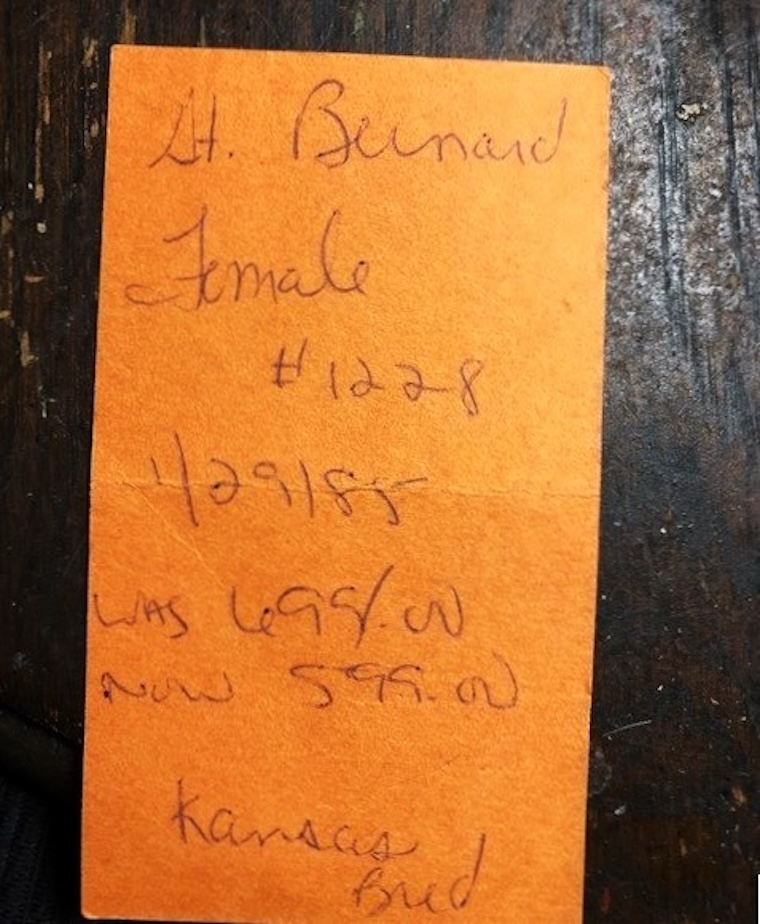 St. Bernard
Female
#1228
1/29/85
WAS 699.00
NOW 599.00
Kansas
Bred